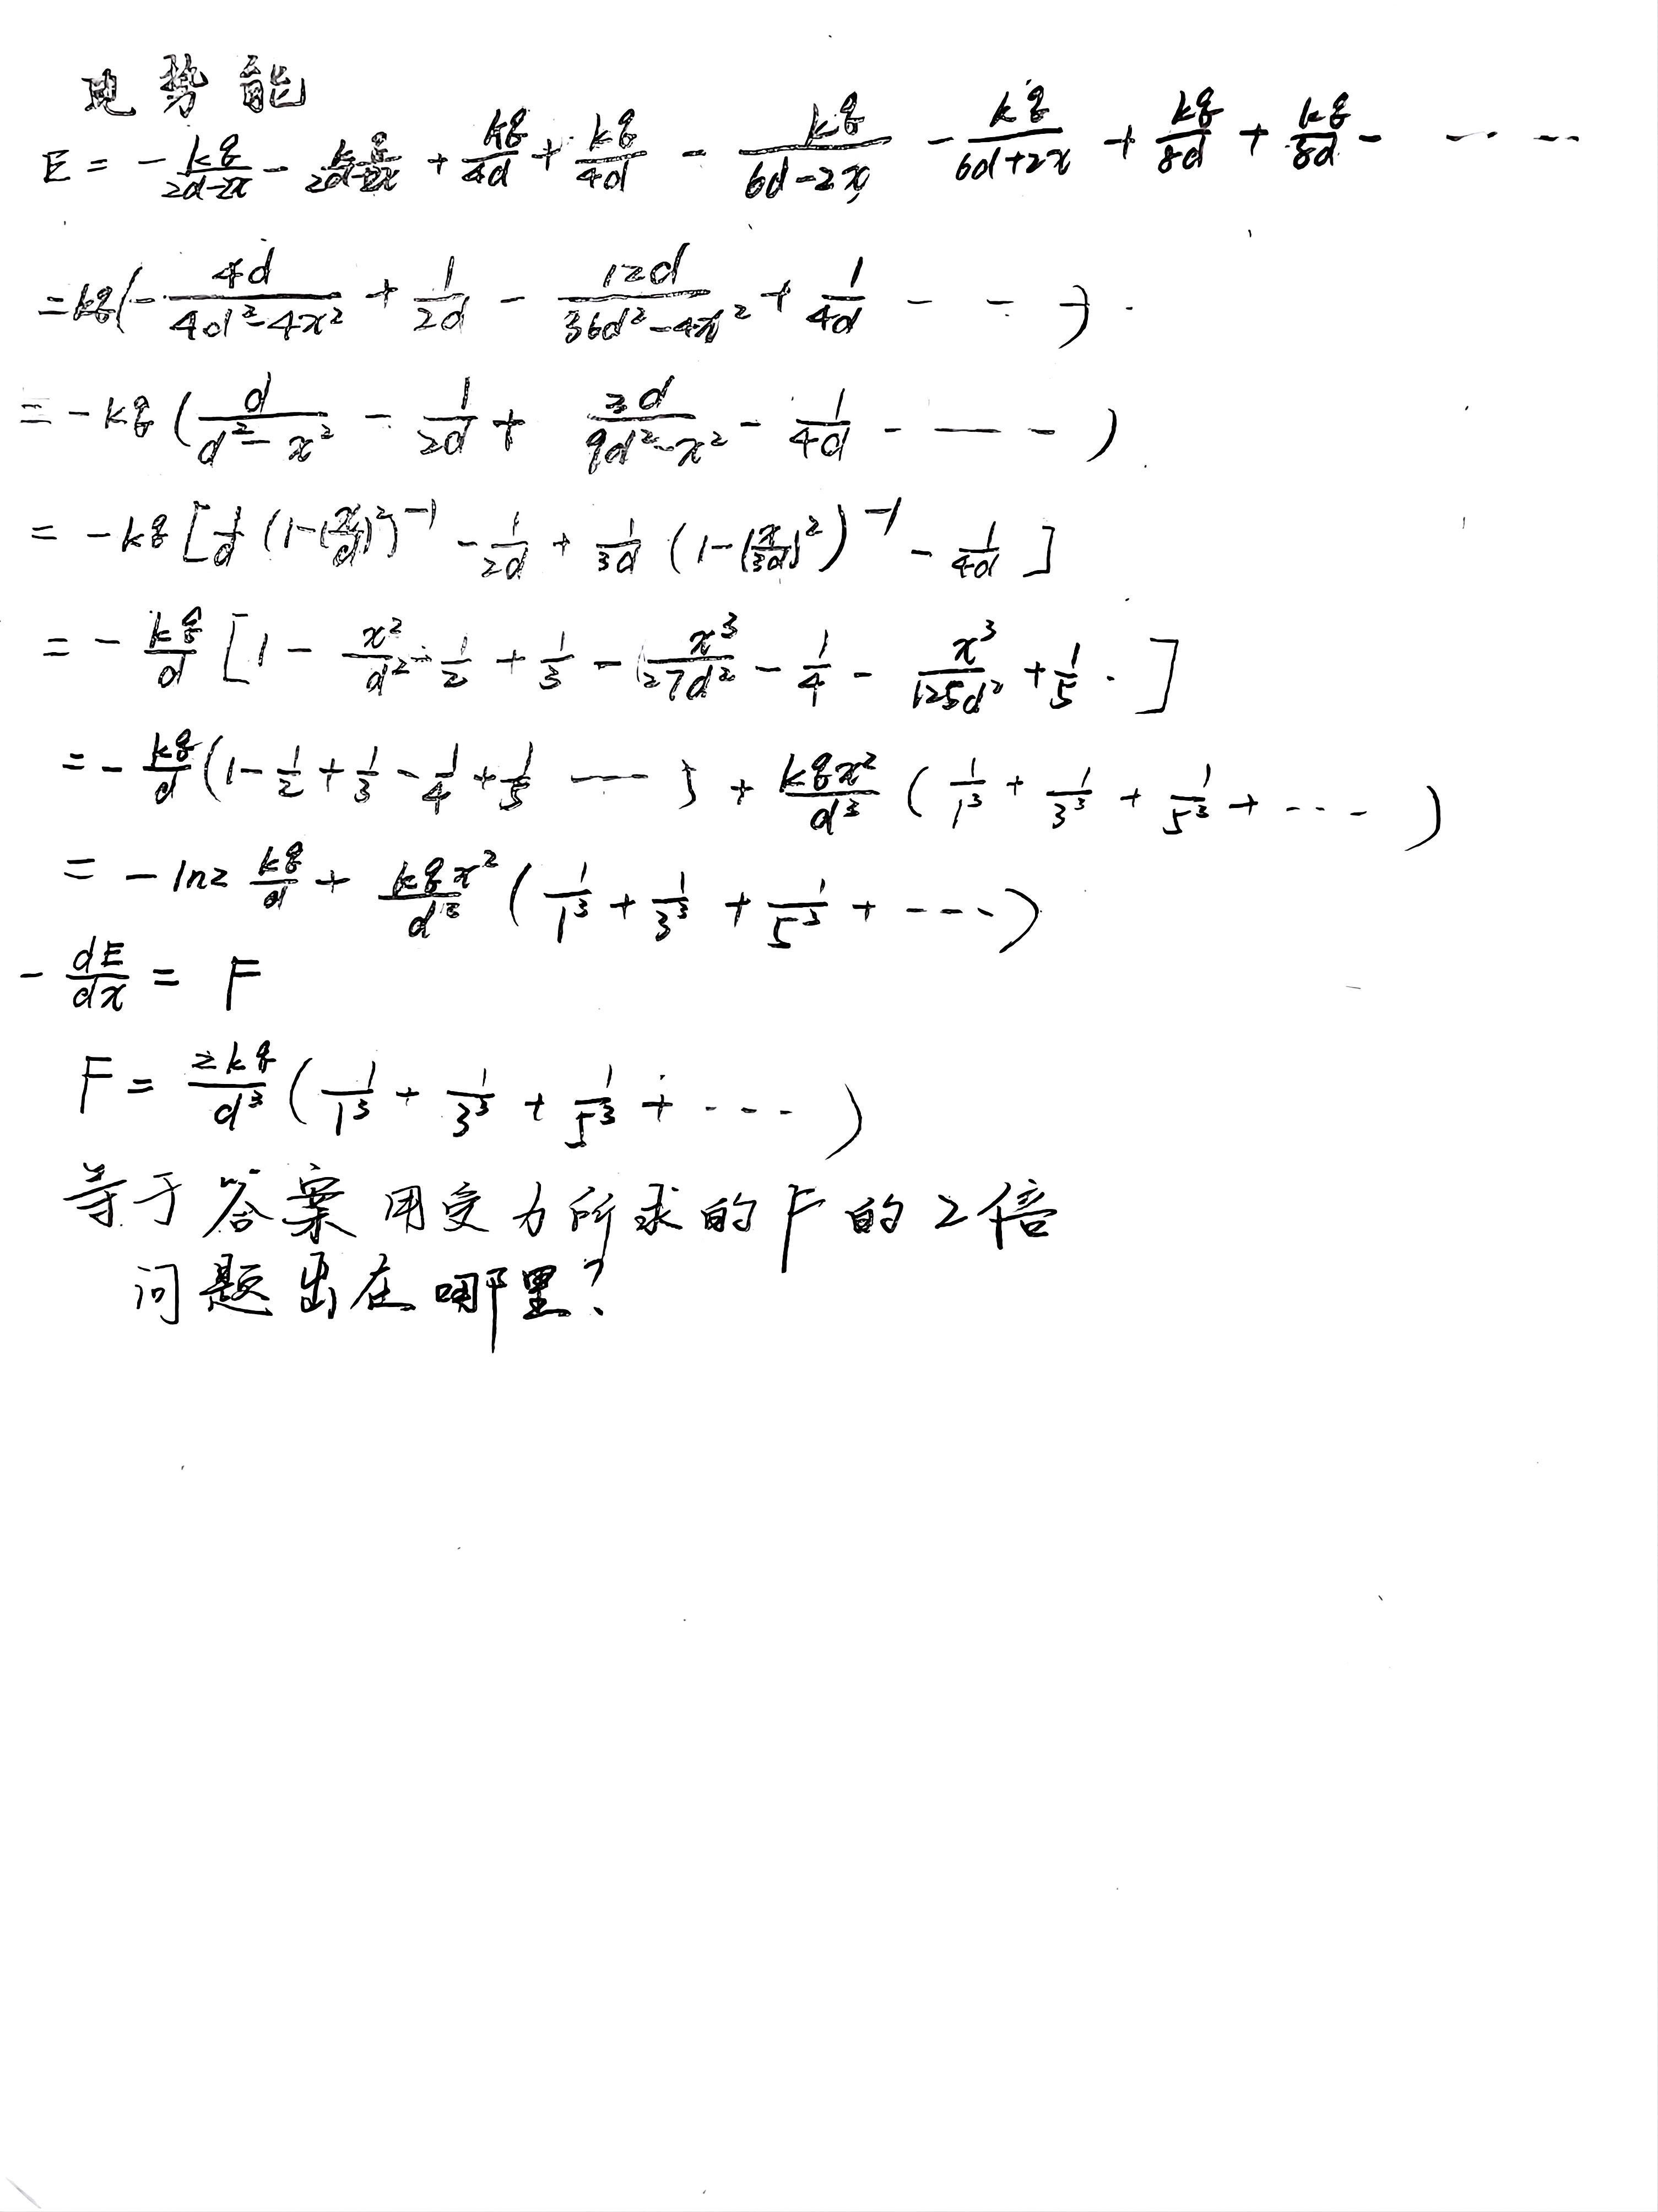 电势能
E = - kq/(2d-2x) - kq/(2d+2x) + kq/4d + kq/4d - kq/(6d-2x) - kq/(6d+2x) + kq/8d + kq/8d - ……
= kq(- 4d/(4d²-4x²) + 1/2d - 12d/(36d²-4x²) + 1/4d - - -).
= -kq(d/(d²-x²) - 1/2d + 3d/(9d²-x²) - 1/4d - — -)
= -kq[1/d (1-(x/d)²)⁻¹ - 1/2d + 1/3d (1-(x/3d)²)⁻¹ - 1/4d]
= - kq/d [1 - x²/d² - 1/2 + 1/3 - x³/27d² - 1/4 - x³/125d² + 1/5 .]
= - kq/d (1 - 1/2 + 1/3 - 1/4 + 1/5 ……) + kqx²/d³ (1/1³ + 1/3³ + 1/5³ + ……)
= - ln2 kq/d + kqx²/d³ (1/1³ + 1/3³ + 1/5³ + ……)
- dE/dx = F
F = 2kq/d³ (1/1³ + 1/3³ + 1/5³ + ……)
等于答案用受力所求的F的2倍
问题出在哪里?